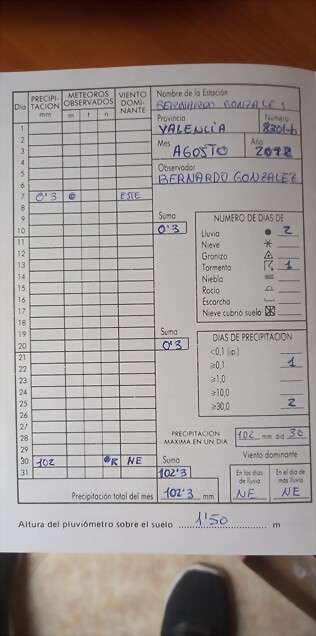 Nombre de la Estación
BERNARDO GONZALEZ
Provincia Número
VALENCIA 8301-b
Mes Año
AGOSTO
Observador
BERNARDO GONZALEZ
Día PRECIPI-TACION mm METEOROS OBSERVADOS m t n VIENTO DOMI-NANTE
1
2
3
4
5
6
7 0'3 ● ESTE
8 Suma
9
10 0'3
11
12
13
14
15
16
17
18
19 Suma
20 0'3
21
22
23
24
25
26
27
28
29
30 102 ●R NE Suma
31 102'3
Precipitación total del mes 102'3 mm
NUMERO DE DIAS DE
Lluvia ● 2
Nieve
Granizo
Tormenta 1
Niebla
Rocío
Escarcha
Nieve cubrió suelo
DIAS DE PRECIPITACION
<0,1 (ip.)
≥0,1 1
≥1,0
≥10,0
≥30,0 2
PRECIPITACION MAXIMA EN UN DIA 102 mm día 30
Viento dominante
En los días de lluvia NE
En el día de más lluvia NE
Altura del pluviómetro sobre el suelo 1'50 m